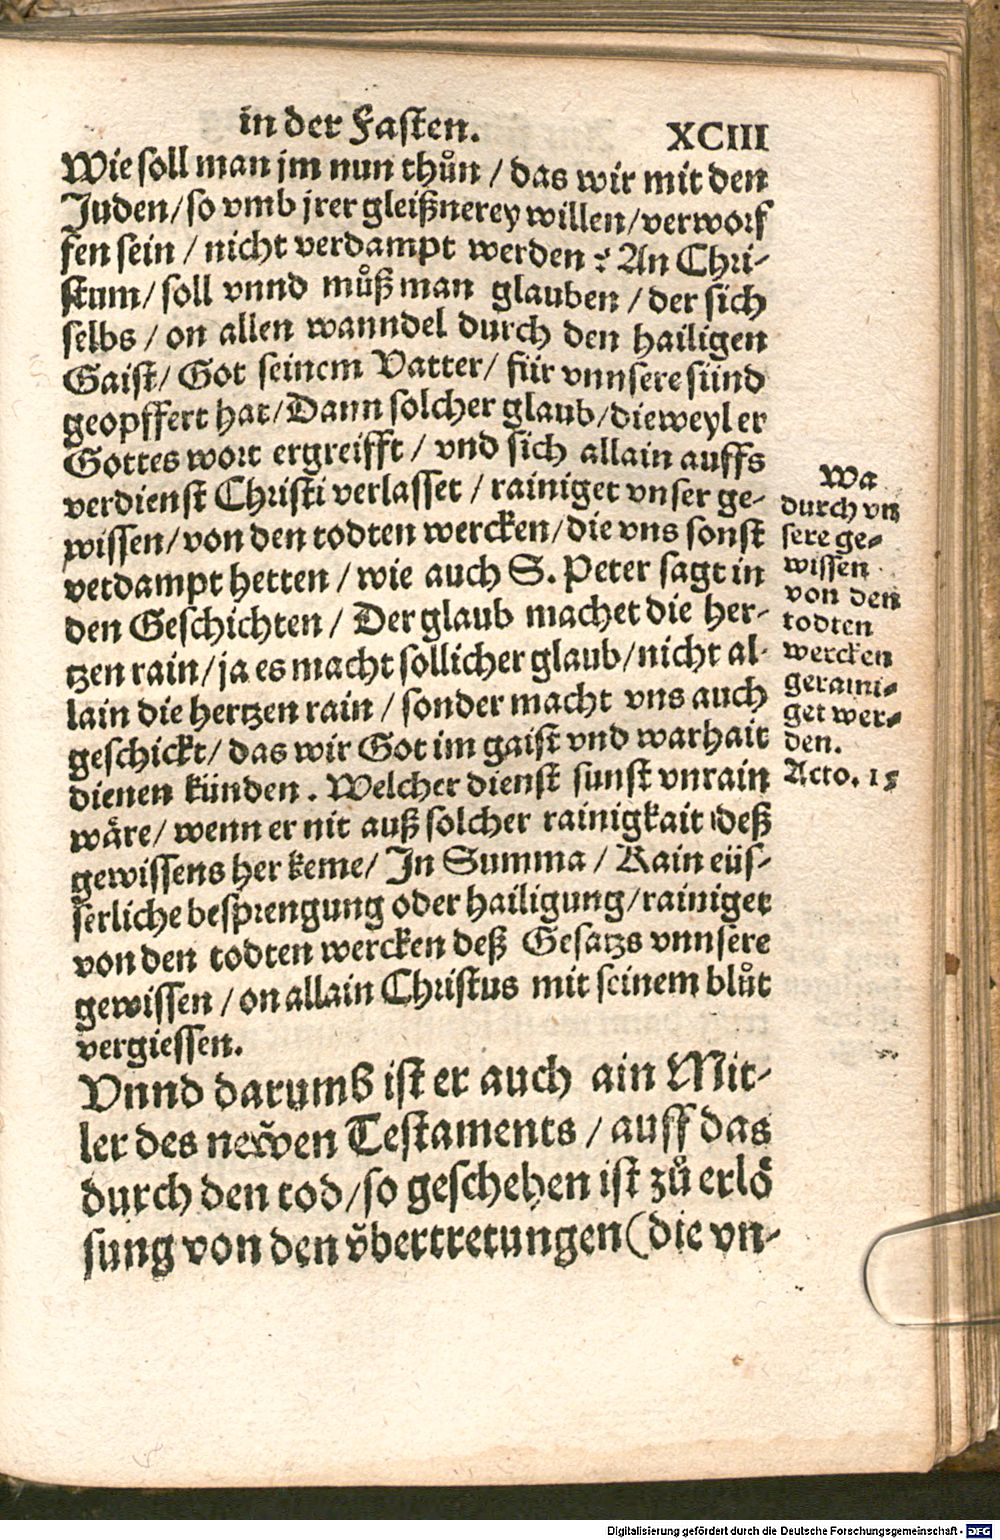 in der Fasten. XCIII
Wie soll man jm nun thůn / das wir mit den
Juden / so vmb jrer gleißnerey willen / verworf
fen sein / nicht verdampt werden? An Chri-
stum / soll vnnd můß man glauben / der sich
selbs / on allen wanndel durch den hailigen
Gaist / Got seinem Vatter / für vnnsere sünd
geopffert hat / Dann solcher glaub / dieweyl er
Gottes wort ergreifft / vnd sich allain auffs
verdienst Christi verlasset / rainiget vnser ge-
wissen / von den todten wercken / die vns sonst
verdampt hetten / wie auch S. Peter sagt in
den Geschichten / Der glaub machet die her-
tzen rain / ja es macht sollicher glaub / nicht al-
lain die hertzen rain / sonder macht vns auch
geschickt / das wir Got im gaist vnd warhait
dienen künden. Welcher dienst sunst vnrain
wäre / wenn er nit auß solcher rainigkait deß
gewissens her keme / In Summa / Kain eüs-
serliche besprengung oder hailigung / rainiget
von den todten wercken deß Gesatzs vnnsere
gewissen / on allain Christus mit seinem blůt
vergiessen.
Vnnd darumb ist er auch ain Mit-
ler des newen Testaments / auff das
durch den tod / so geschehen ist zů erlö
sung von den vͤbertretungen (die vn-
Wa
durch vn
sere ge-
wissen
von den
todten
wercken
geraini-
get wer-
den.
Acto. 15
Digitalisierung gefördert durch die Deutsche Forschungsgemeinschaft - DFG